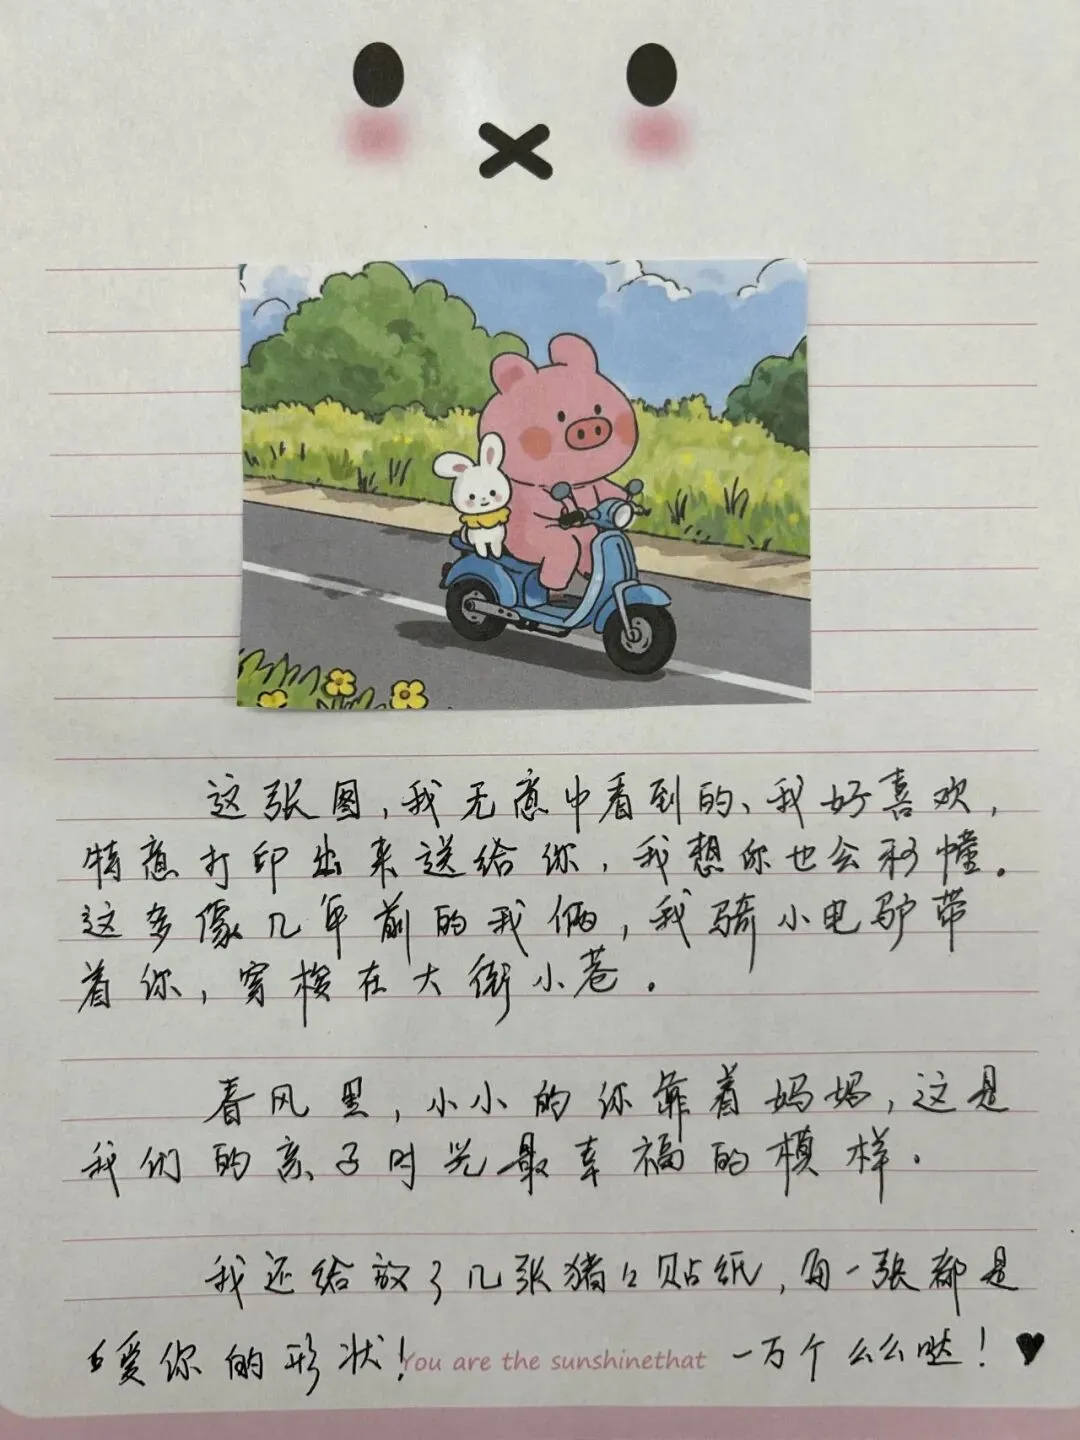 这张图,我无意中看到的、我好喜欢,
特意打印出来送给你,我想你也会私懂。
这多像几年前的我俩,我骑小电驴带
着你,穿梭在大街小巷.
春风里,小小的你靠着妈妈,这是
我们的亲子时光最幸福的模样.
我还给放了几张猪猪贴纸,每一张都是
爱你的形状!
You are the sunshinethat
一万个么么哒!